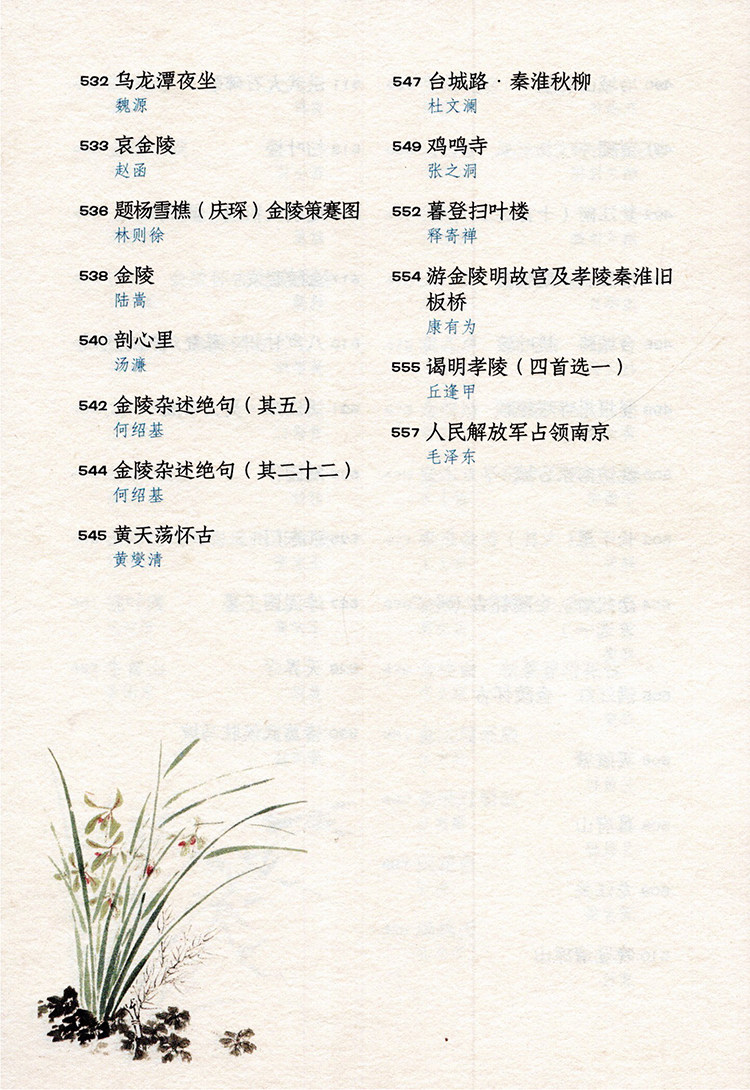 532 乌龙潭夜坐
魏源
533 哀金陵
赵函
536 题杨雪樵（庆琛）金陵策蹇图
林则徐
538 金陵
陆嵩
540 剖心里
汤濂
542 金陵杂述绝句（其五）
何绍基
544 金陵杂述绝句（其二十二）
何绍基
545 黄天荡怀古
黄燮清
547 台城路·秦淮秋柳
杜文澜
549 鸡鸣寺
张之洞
552 暮登扫叶楼
释寄禅
554 游金陵明故宫及孝陵秦淮旧
板桥
康有为
555 谒明孝陵（四首选一）
丘逢甲
557 人民解放军占领南京
毛泽东